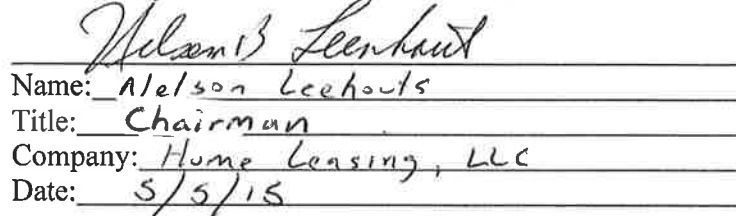 Nelson B Leenhouts
Name: Nelson Leehouts
Title: Chairman
Company: Home Leasing, LLC
Date: 5/5/15